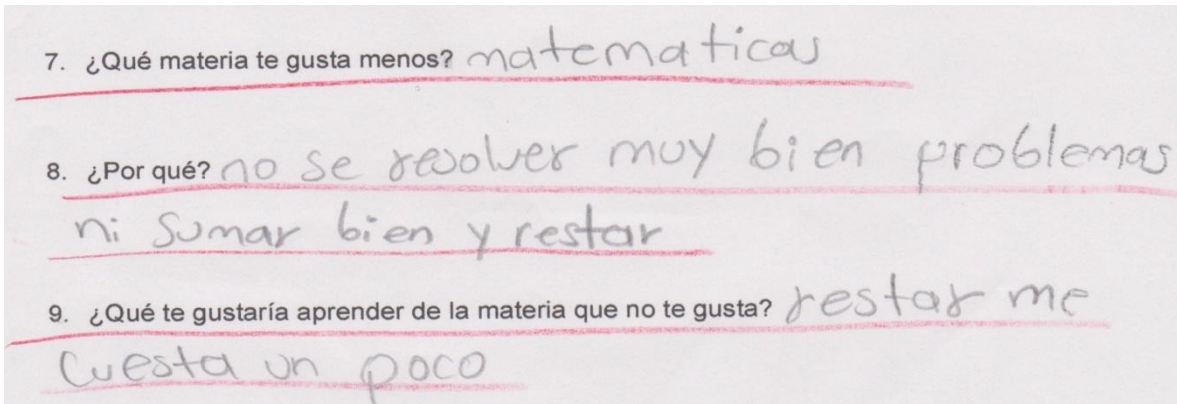 7. ¿Qué materia te gusta menos? matematicas
8. ¿Por qué? no se resolver muy bien problemas
ni sumar bien y restar
9. ¿Qué te gustaría aprender de la materia que no te gusta? restar me
cuesta un poco